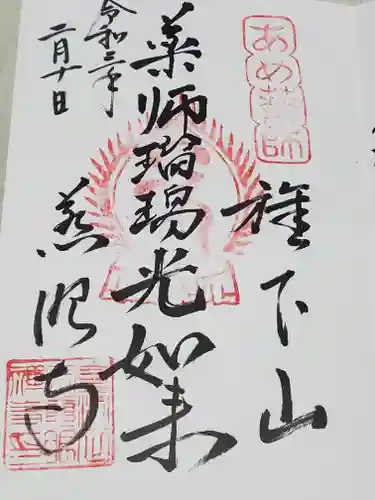 あめ薬師
下山
薬師瑠璃光如来
慈眼寺
令和二年
二月十日